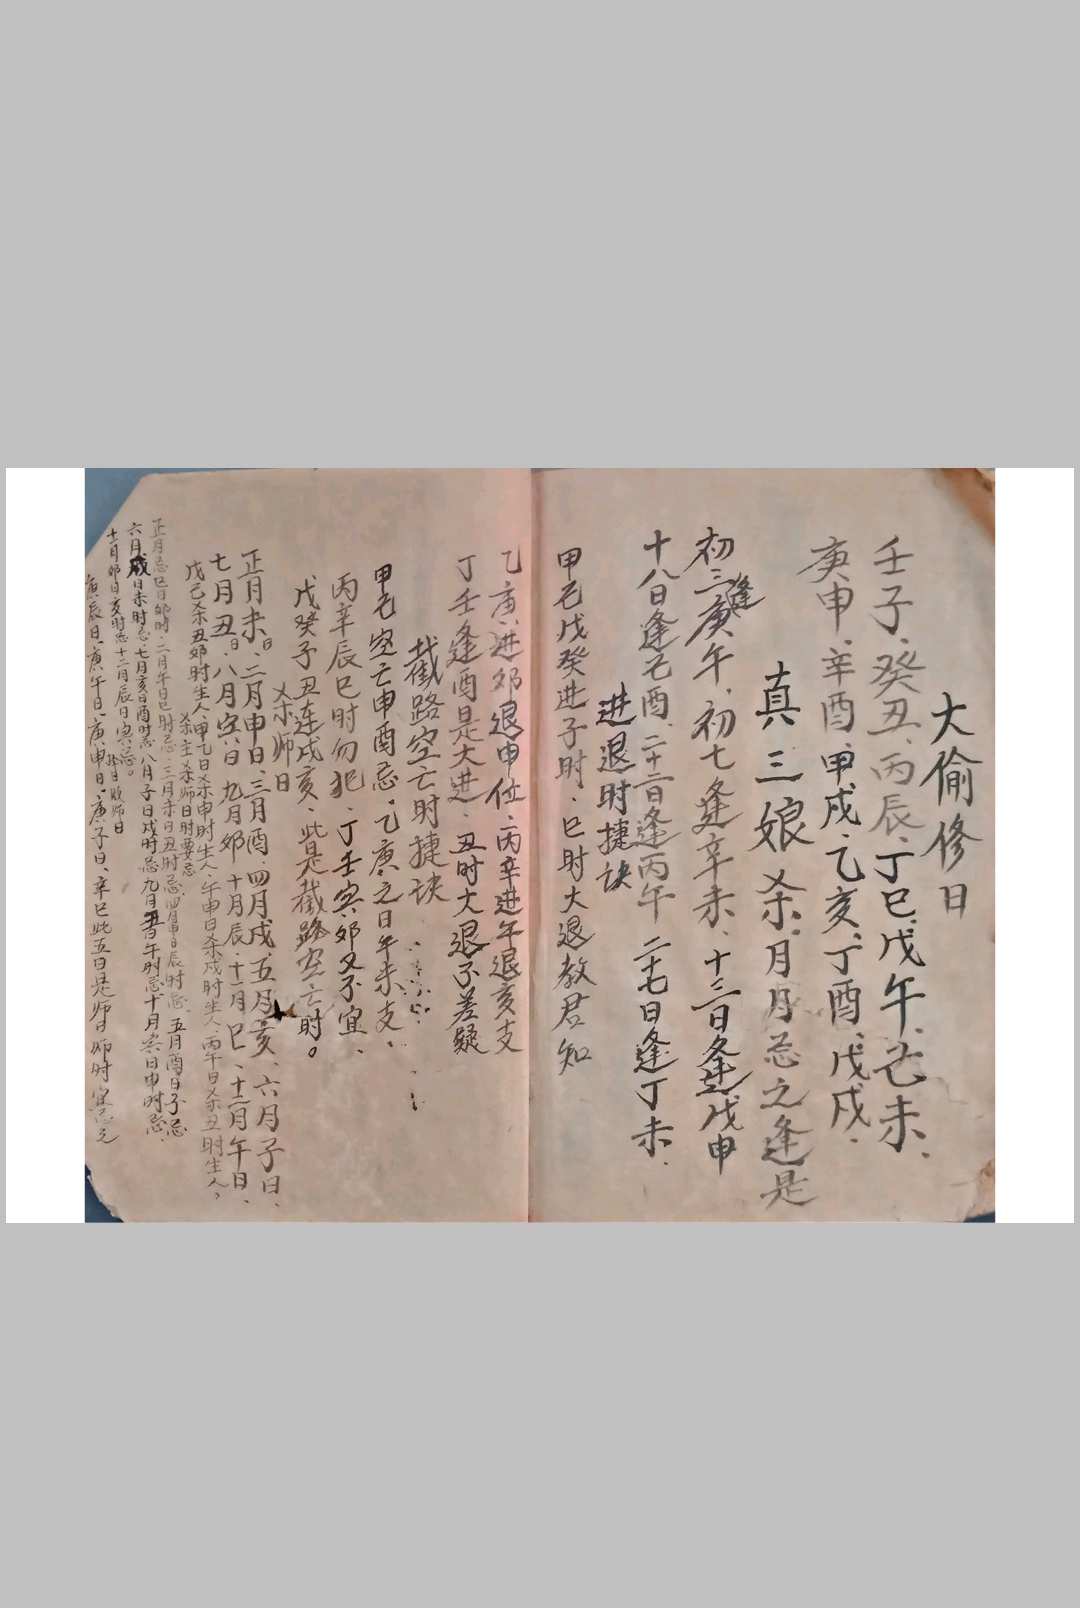 大偷修日
壬子、癸丑、丙辰、丁巳、戊午、己未、
庚申、辛酉、甲戌、乙亥、丁酉、戊戌、
真三娘杀、月月忌之逢是
初三逢庚午、初七逢辛未、十三日逢戊申
十八日逢己酉、二十二日逢丙午 二十七日逢丁未、
进退时捷诀
甲己戊癸进子时、巳时大退教君知
乙庚进卯退申位、丙辛进午退亥支
丁壬逢酉是大进、丑时大退不差疑
截路空亡时捷诀
甲己空亡申酉忌、乙庚之日午未支、
丙辛辰巳时勿犯、丁壬寅卯又不宜、
戊癸子丑连戌亥、此是截路空亡时。
杀师日
正月未日、二月申日、三月酉、四月戌、五月亥、六月子日、
七月丑日、八月寅日、九月卯、十月辰、十一月巳、十二月午日、
戊己杀丑卯时生人、甲乙日杀申时生人、午申日杀戌时生人、丙午日杀丑时生人,
杀主杀师日时要忌
正月忌巳日卯时、二月午日巳时忌、三月未日丑时忌、四月申日辰时忌、五月酉日子忌
六月戌日未时忌、七月亥日酉时忌 八月子日戌时忌 九月丑日午时忌 十月寅日申时忌、
十一月卯日亥时忌 十二月辰日寅忌。
败师日
庚辰日、庚午日、庚申日、庚子日、辛巳此五日是师日 师时宜忌之